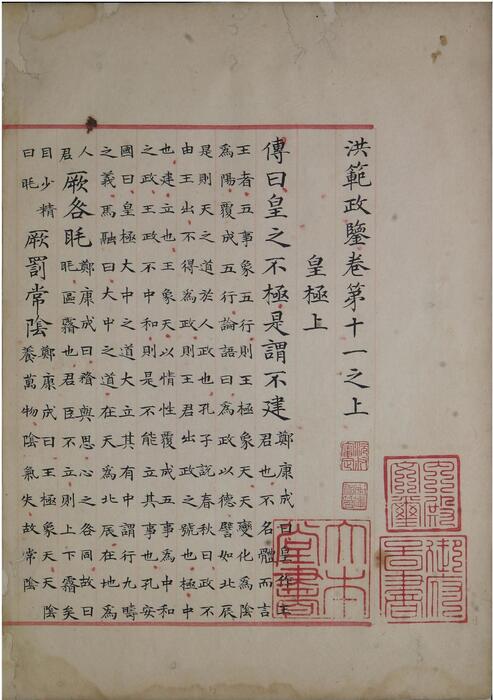 洪範政鑒卷第十一之上
皇極上
傳曰皇之不極是謂不建
鄭康成曰皇作王
君也不名體而言
王者五事象五行則王極象天天變化為陰
為陽覆成五行論語曰為政以德譬如北辰
是則天之道於人政也孔子說春秋曰政不
由王出不得為政則王君出政之號也極中
也建立也王象天以情性覆成五事為中和
之政王政不中和則是不能立其事也孔安
國曰皇極大中之道大立其有中謂行九疇
之義馬融曰大中之道在天為北辰在地為
人
君
厥咎眊
鄭康成曰瞀與思心之咎同故曰
眊區霧也君臣不立則上下霧矣
目少精
曰眊
厥罰常陰
鄭康成曰王極象天天陰
養萬物陰氣失故常陰
內殿文璽
御府圖書
大本堂書